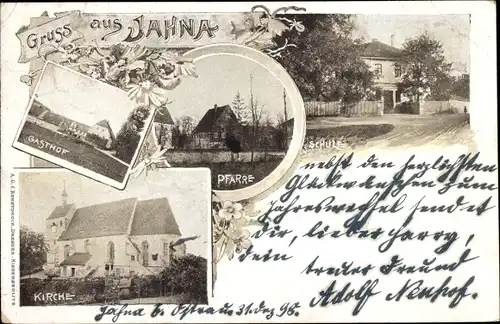 Gruss aus JAHNA
GASTHOF
PFARRE
SCHULE
KIRCHE
nebst den herzlichsten
Glückwünschen zum
Jahreswechsel sendet
dir, lieber Harry,
dein
treuer Freund
Adolf Neuhof.
Jahna b. Ostrau 31. Dez 98.